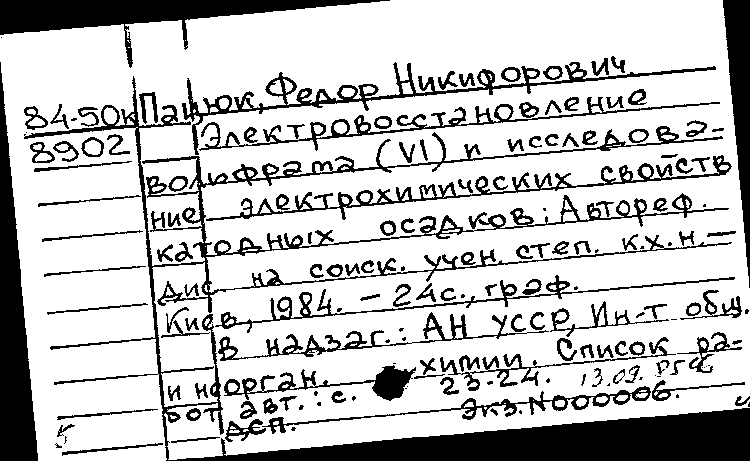 84-50к Пацюк, Федор Никифорович.
8902 Электровосстановление
вольфрама (VI) и исследова-
ние электрохимических свойств
катодных осадков: Автореф.
дис. на соиск. учен. степ. к.х.н. –
Киев, 1984. – 24с., граф.
В надзаг.: АН УССР, Ин-т общ.
и неорган. химии. Список ра-
бот авт.: с. 23-24. 13.09.
5 ДСП. Экз. N000006.